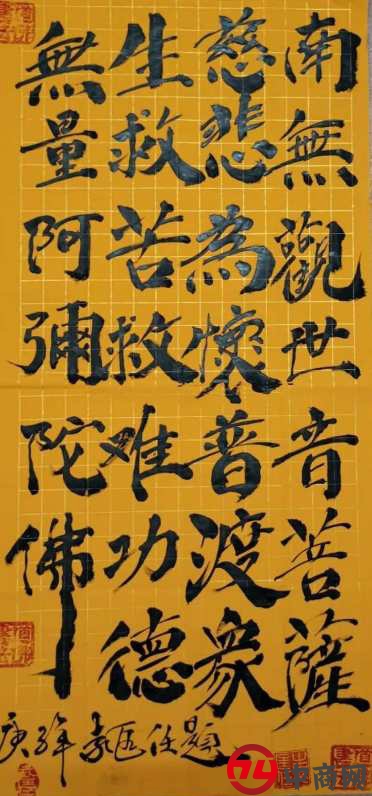 南無觀世音菩薩
慈悲為懷普渡衆
生救苦救难功德
無量阿彌陀佛
中商网